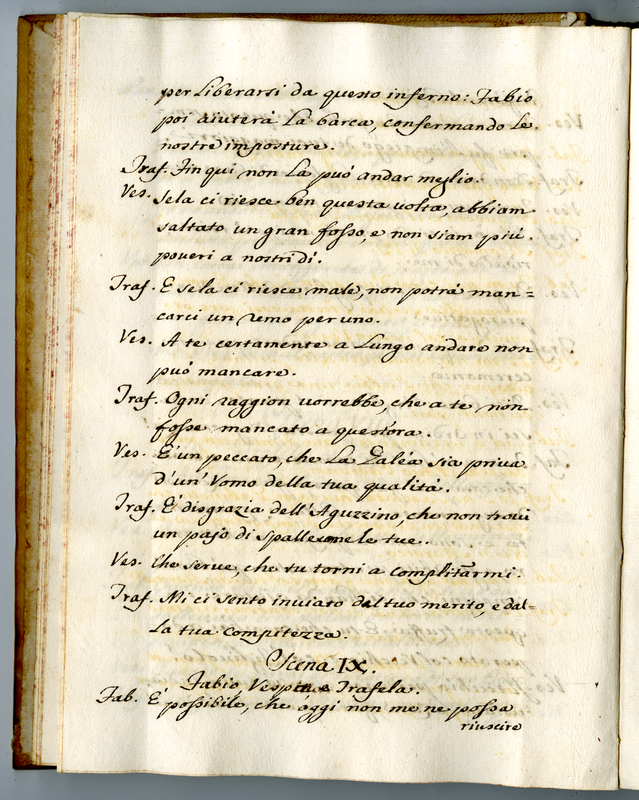 per liberarsi da questo inferno: Fabio
poi aiuterà la barca, confermando le
nostre imposture.
Traf. Fin qui non la può andar meglio.
Ves. Se la ci riesce ben questa volta, abbiam
saltato un gran fosso, e non siam più
poveri a nostri dì.
Traf. E se la ci riesce male, non potrà man=
carci un remo per uno.
Ves. A te certamente a lungo andare non
può mancare.
Traf. Ogni raggion vorrebbe, che a te non
fosse mancato a quest'ora.
Ves. È un peccato, che la Galéa sia priva
d'un' Vomo della tua qualità.
Traf. È disgrazia dell'Aguzzino, che non trovi
un pajo di spalle come le tue.
Ves. Che serve, che tu torni a complitarmi.
Traf. Mi ci sento inviato dal tuo merito, e dal=
la tua compitezza.
Scena IX.
Fabio, Vespina e Trafela.
Fab. È possibile, che oggi non me ne possa
riuscire